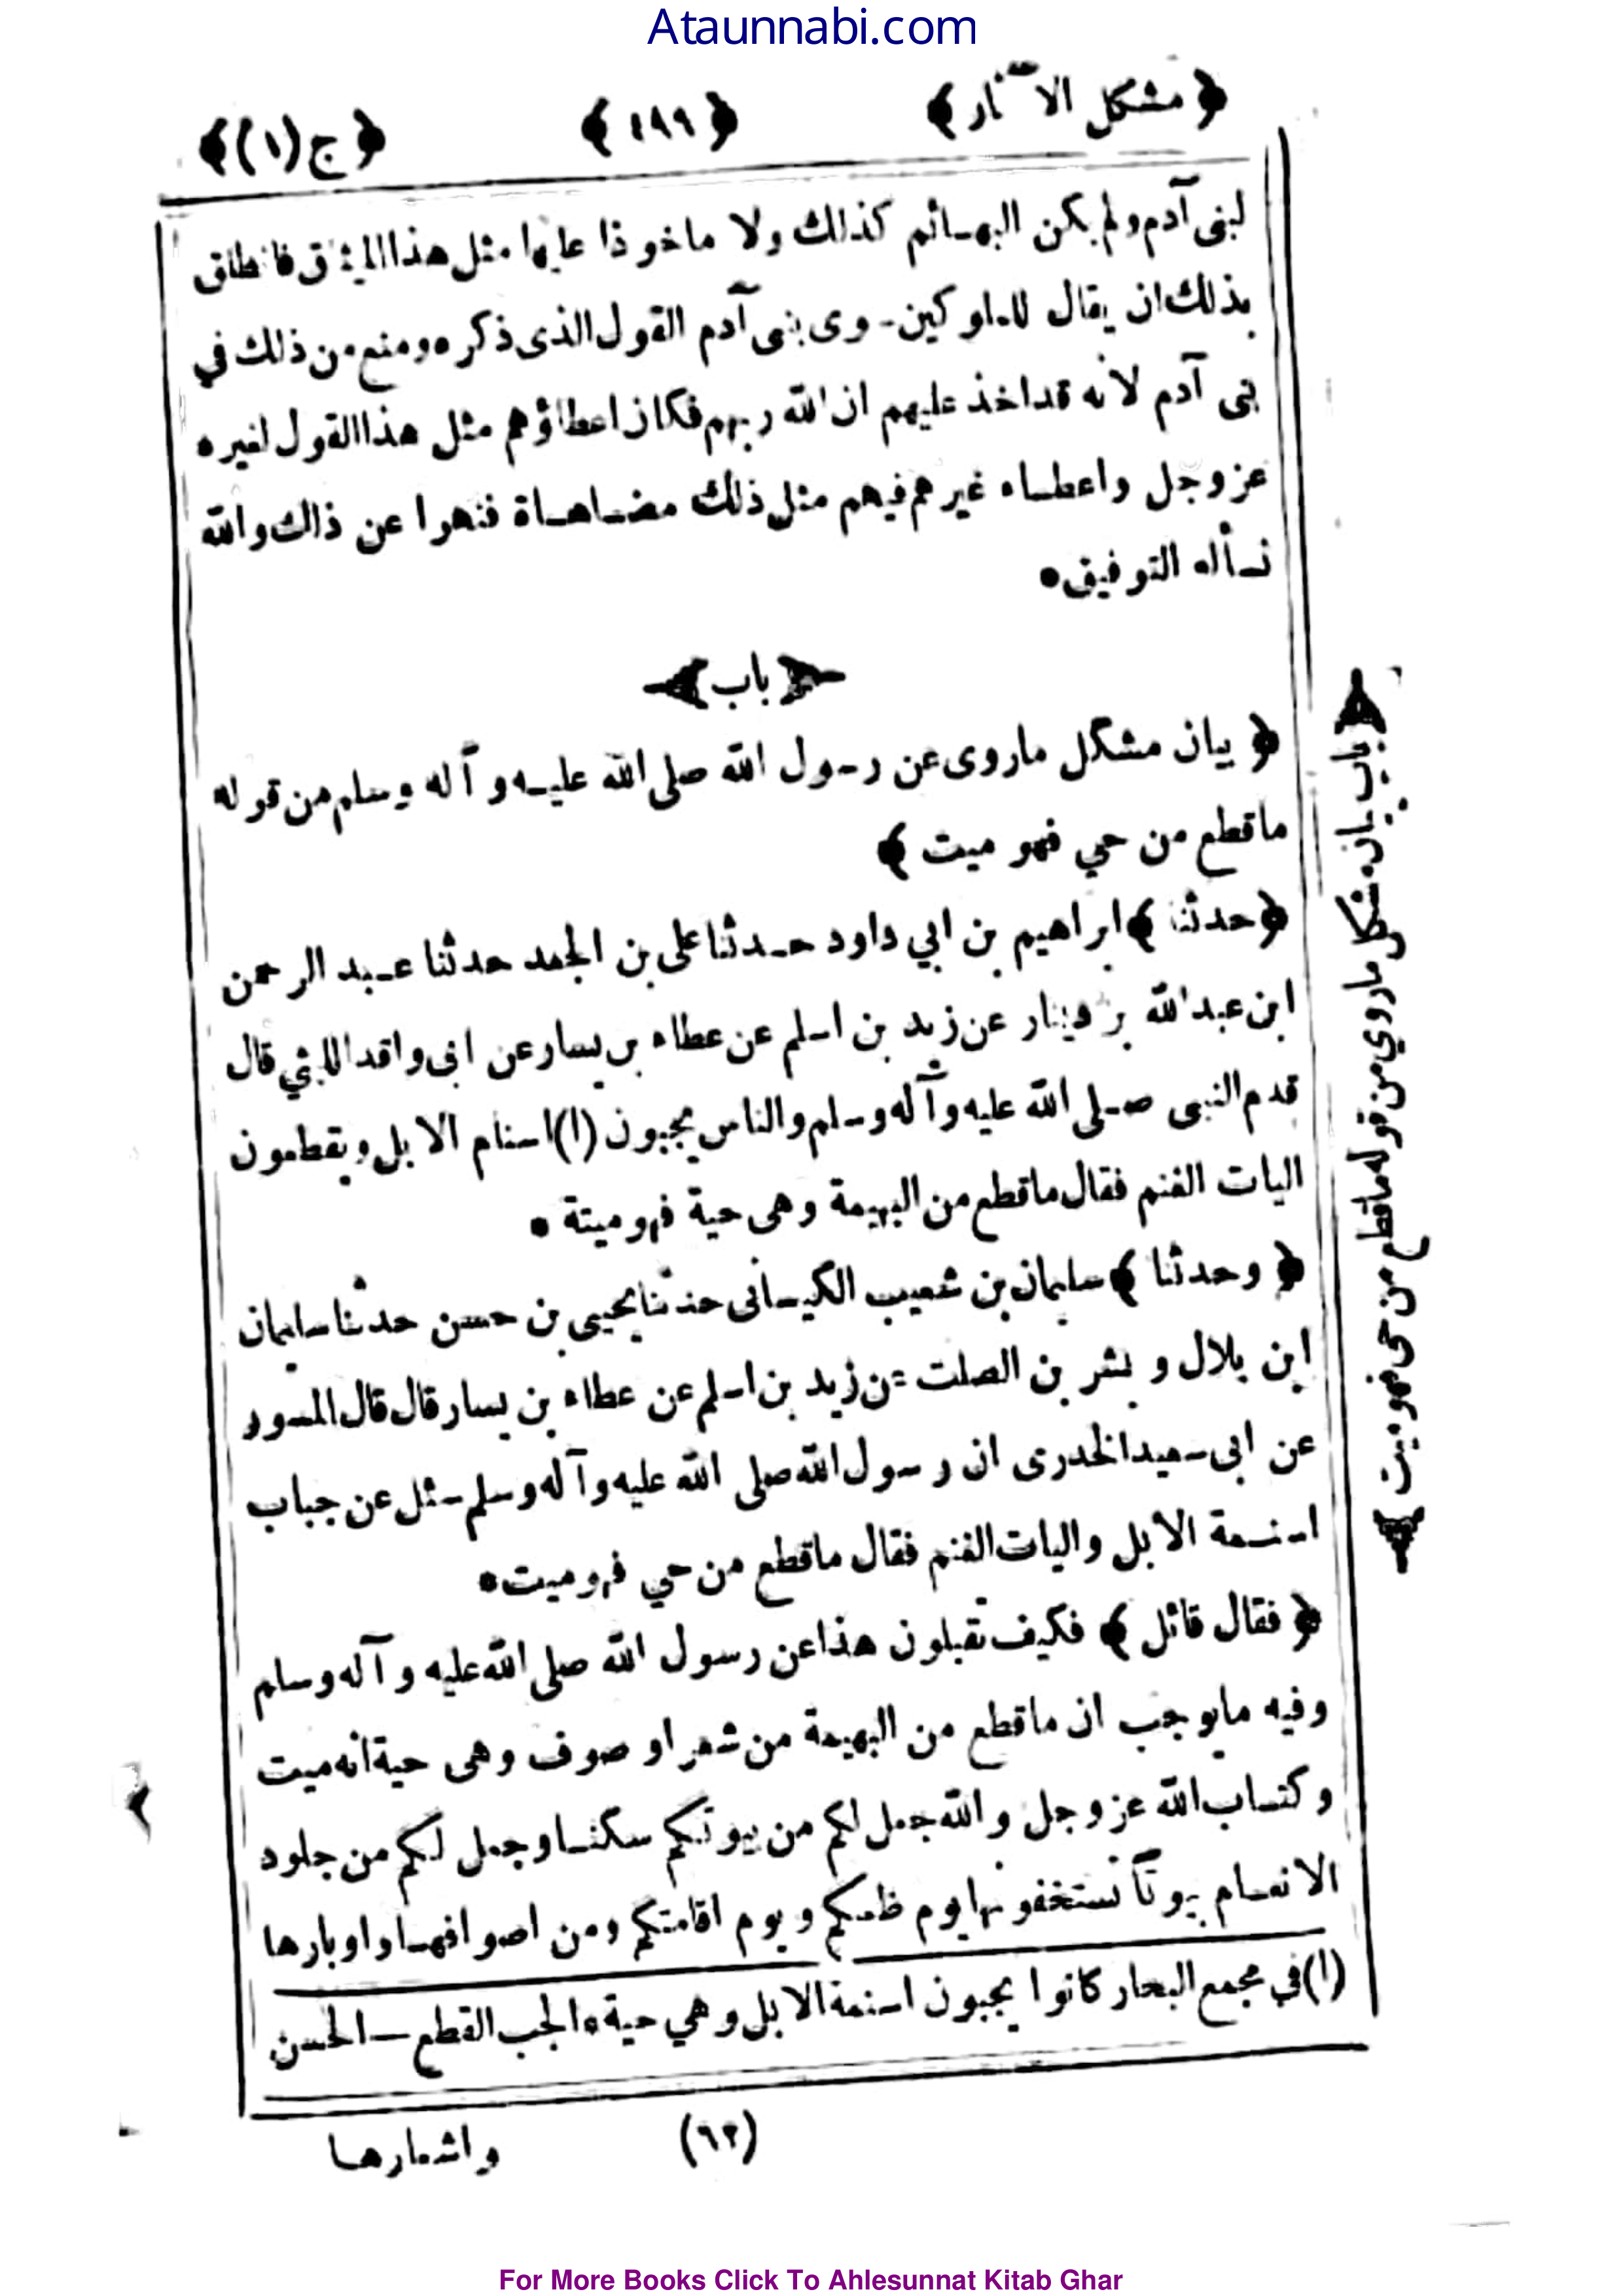 Ataunnabi.com
﴿ مشكل الآثار ﴾ ﴿ ٤٩٩ ﴾ ﴿ ج (١) ﴾
لبنى آدم ولم يكن البهائم كذلك ولا ماخوذا عليها مثل هذا الميثاق فانطلق
بذلك ان يقال للملوكين سوى بنى آدم القول الذى ذكره ومنع من ذلك في
بنى آدم لانه قد اخذ عليهم ان الله ربهم فكان اعطاؤهم مثل هذا القول لغيره
عز وجل واعطاء غيرهم فيهم مثل ذلك مضاهاة فنهوا عن ذلك والله
نسأله التوفيق •
﴿ باب ﴾
﴿ بيان مشكل ماروى عن رسول الله صلى الله عليه وآله وسلم من قوله
ماقطع من حي فهو ميت ﴾
﴿ حدثنا ﴾ ابراهيم بن ابي داود حدثنا على بن الجعد حدثنا عبد الرحمن
ابن عبد الله بن دينار عن زيد بن اسلم عن عطاء بن يسار عن ابى واقد الليثي قال
قدم النبى صلى الله عليه وآله وسلم والناس يجبون (١) اسنام الابل ويقطعون
اليات الغنم فقال ماقطع من البهيمة وهى حية فهو ميتة •
﴿ وحدثنا ﴾ سليمان بن شعيب الكيسانى حدثنا يحيى بن حسن حدثنا سليمان
ابن بلال و بشر بن الصلت عن زيد بن اسلم عن عطاء بن يسار قال قال المسور
عن ابى سعيد الخدرى ان رسول الله صلى الله عليه وآله وسلم سئل عن جباب
اسنمة الابل واليات الغنم فقال ماقطع من حي فهو ميت •
﴿ فقال قائل ﴾ فكيف تقبلون هذا عن رسول الله صلى الله عليه وآله وسلم
وفيه مايوجب ان ماقطع من البهيمة من شعر او صوف وهى حية انه ميت
وكتاب الله عز وجل والله جعل لكم من بيوتكم سكنا وجعل لكم من جلود
الانعام بيوتا تستخفونها يوم ظعنكم ويوم اقامتكم ومن اصوافها واوبارها
(١) في مجمع البحار كانوا يجبون اسنمة الابل وهي حية • الجب القطع — الحسن
(٦٢) واشعارها
﴿ باب بيان مشكل ماروي من قوله ماقطع من حى فهو ميت ﴾
For More Books Click To Ahlesunnat Kitab Ghar